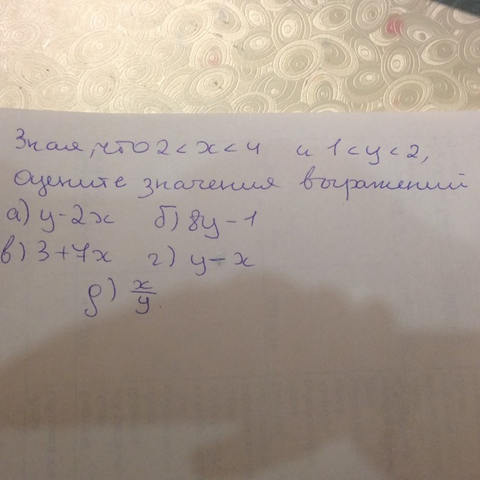 Зная, что 2 < x < 4 и 1 < y < 2,
оцените значения выражений
а) y - 2x б) 8y - 1
в) 3 + 7x г) y - x
д) x/y